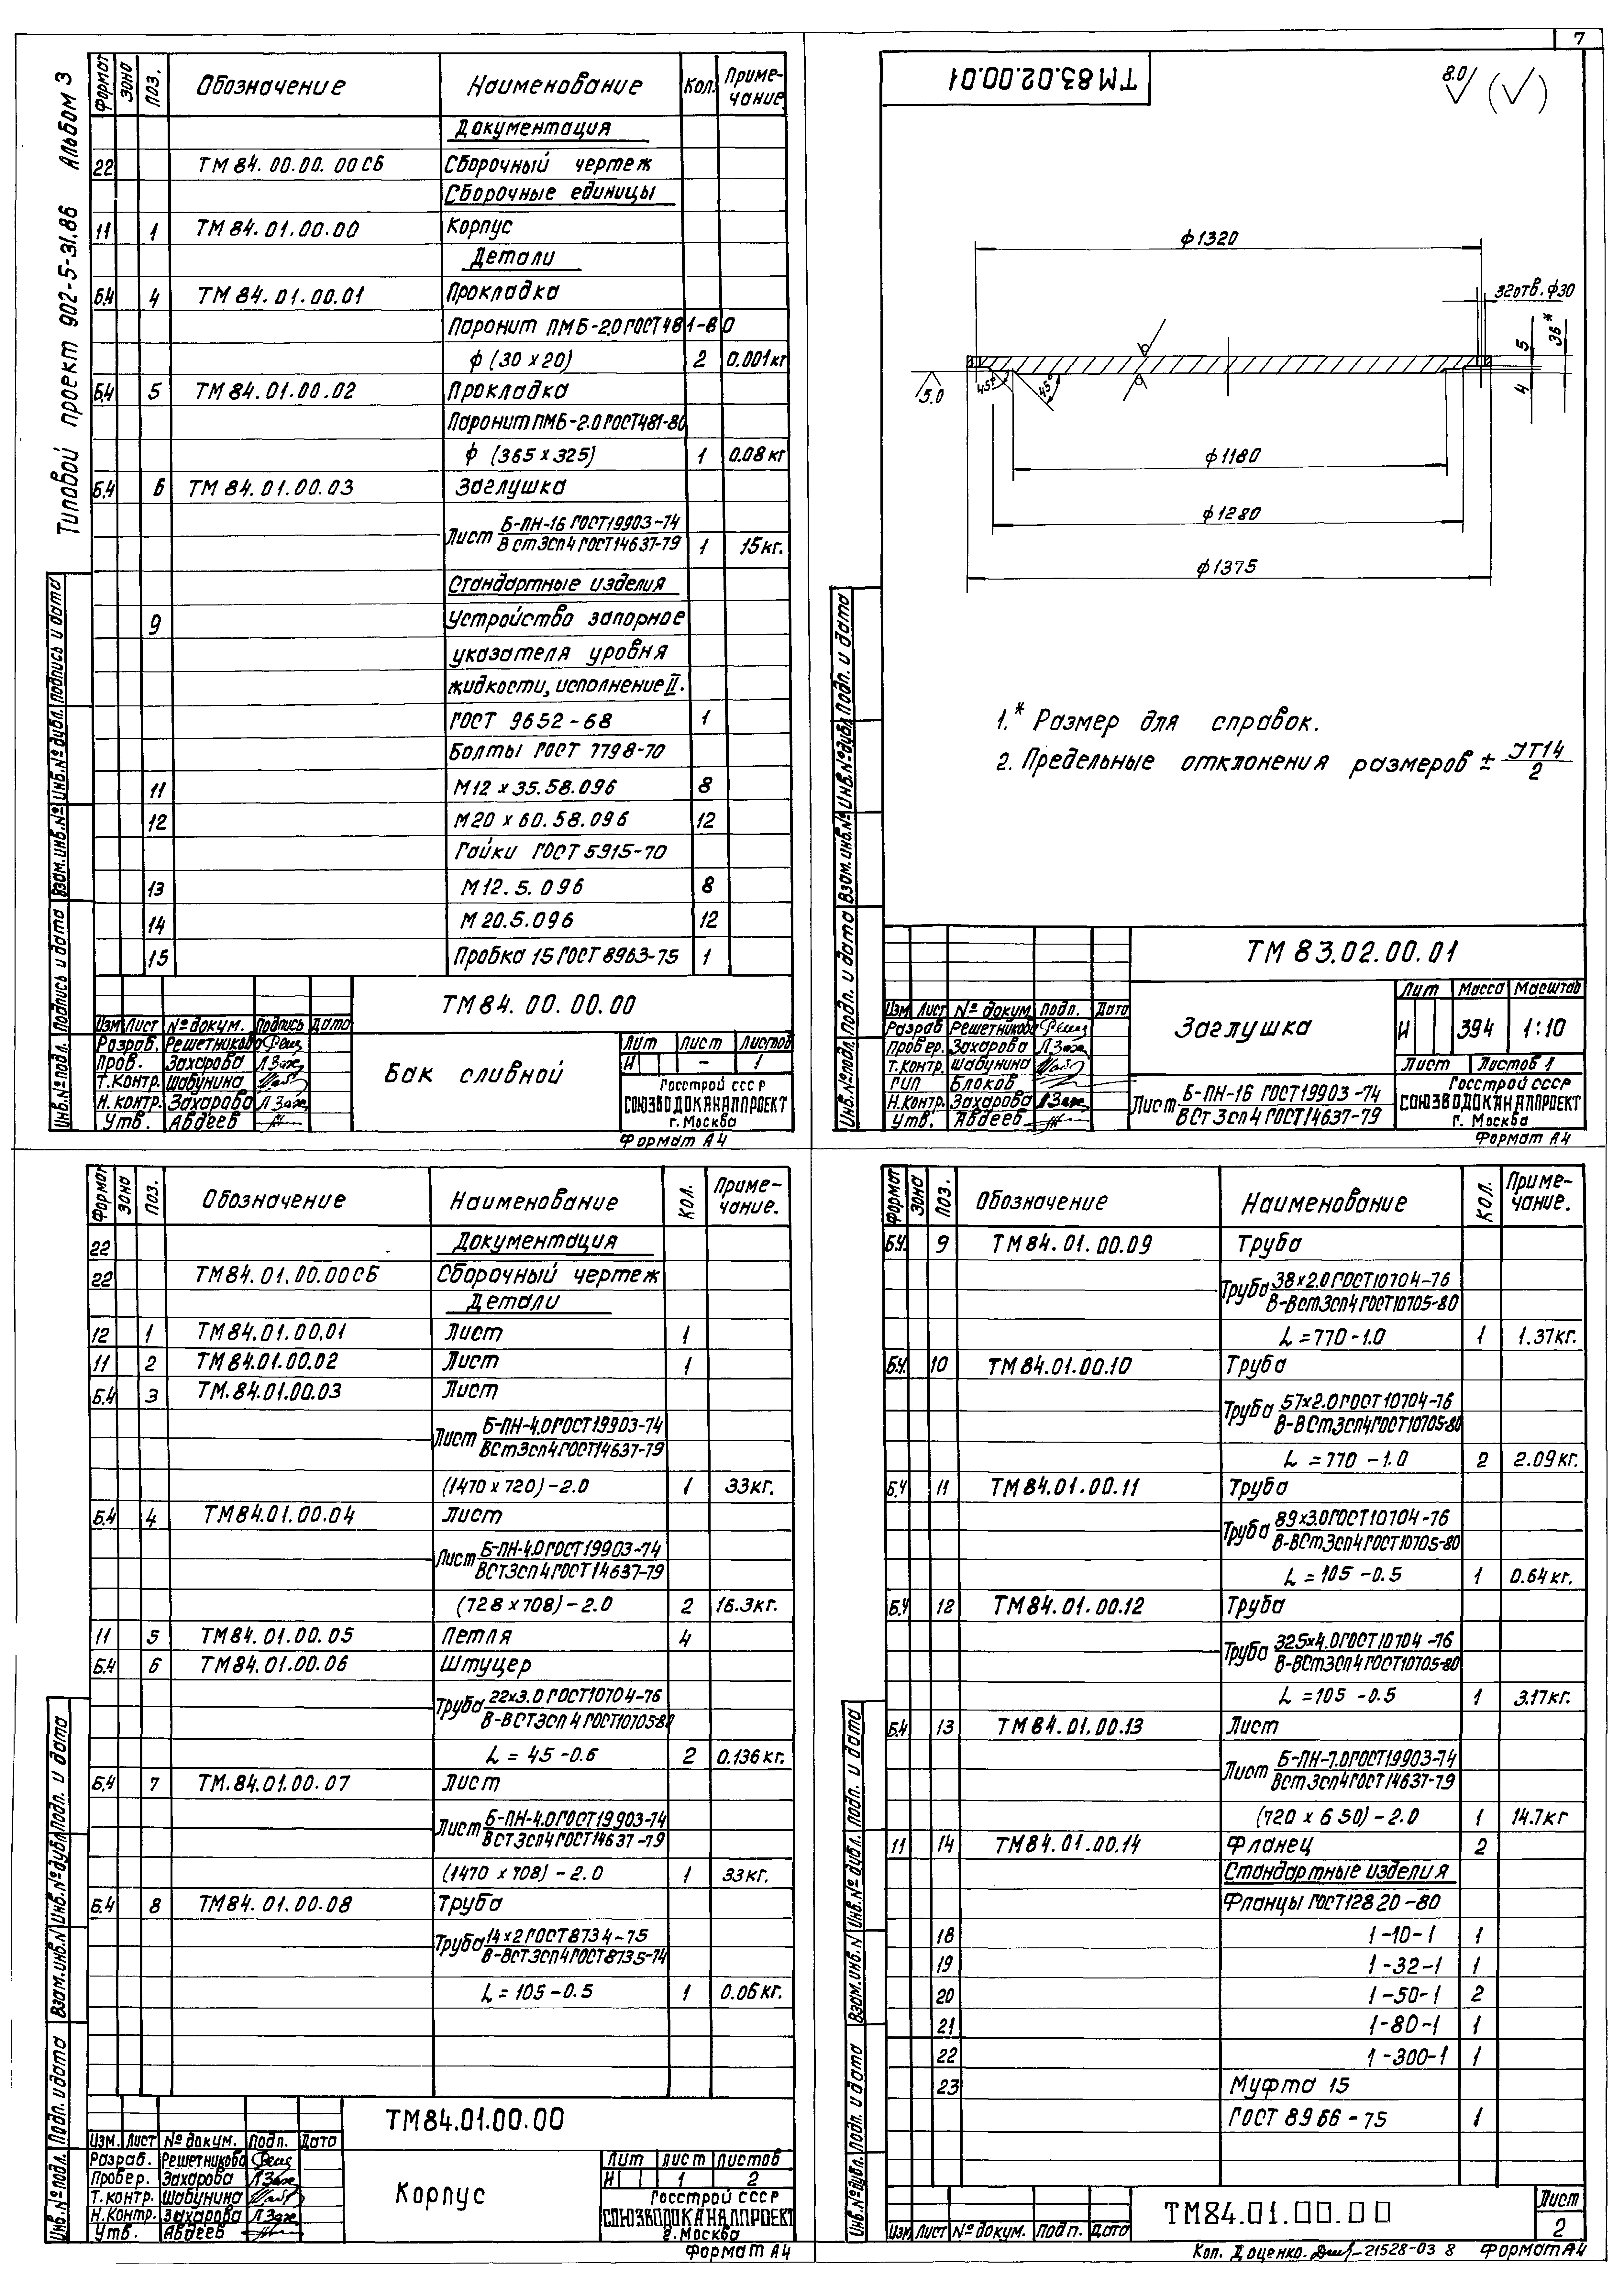 7
Типовой проект 902-5-31.86 Альбом 3
Формат Зона Поз. Обозначение Наименование Кол. Приме-
чание
Документация
22 ТМ 84.00.00.00СБ Сборочный чертеж
Сборочные единицы
11 1 ТМ 84.01.00.00 Корпус
Детали
Б.Ч 4 ТМ 84.01.00.01 Прокладка
Паронит ПМБ-2.0 ГОСТ 481-80
ф (30 х 20) 2 0.001кг
Б.Ч 5 ТМ 84.01.00.02 Прокладка
Паронит ПМБ-2.0 ГОСТ 481-80
ф (365 х 325) 1 0.08 кг
Б.Ч 6 ТМ 84.01.00.03 Заглушка
Лист Б-ПН-16 ГОСТ 19903-74
В Ст3сп4 ГОСТ 14637-79 1 15кг.
Стандартные изделия
9 Устройство запорное
указателя уровня
жидкости, исполнение II.
ГОСТ 9652-68 1
Болты ГОСТ 7798-70
11 М12 х 35.58.096 8
12 М20 х 60.58.096 12
Гайки ГОСТ 5915-70
13 М12.5.096 8
14 М20.5.096 12
15 Пробка 15 ГОСТ 8963-75 1
Инв.№подл. Подпись и дата Взам.инв.№ Инв.№дубл. Подпись и дата
ТМ 84.00.00.00
Изм Лист №докум. Подпись Дата
Разраб. Решетникова
Пров. Захарова
Т.контр. Шабунина
Н.контр. Захарова
Утв. Авдеев
Бак сливной
Лит Лист Листов
И - 1
Госстрой СССР
СОЮЗВОДОКАНАЛПРОЕКТ
г. Москва
Формат А4
ТМ 83.02.00.01
8.0
ф1320
32отв. ф30
36*
5
4
5.0
45°
45°
ф1180
ф1280
ф1375
1.* Размер для справок.
2. Предельные отклонения размеров ± JT14
2
Инв.№подл. Подп. и дата Взам.инв.№ Инв.№дубл. Подп. и дата
ТМ 83.02.00.01
Изм Лист №докум. Подп. Дата
Разраб Решетникова
Провер. Захарова
Т.контр. Шабунина
ГИП Блоков
Н.контр. Захарова
Утв. Авдеев
Заглушка
Лит Масса Масштаб
И 394 1:10
Лист Листов 1
Лист Б-ПН-16 ГОСТ 19903-74
ВСт3сп4 ГОСТ 14637-79
Госстрой СССР
СОЮЗВОДОКАНАЛПРОЕКТ
г. Москва
Формат А4
Формат Зона Поз. Обозначение Наименование Кол. Приме-
чание.
22 Документация
22 ТМ 84.01.00.00СБ Сборочный чертеж
Детали
12 1 ТМ 84.01.00.01 Лист 1
11 2 ТМ 84.01.00.02 Лист 1
Б.Ч 3 ТМ.84.01.00.03 Лист
Лист Б-ПН-4.0 ГОСТ 19903-74
ВСт3сп4 ГОСТ 14637-79
(1470 х 720)-2.0 1 33кг.
Б.Ч 4 ТМ 84.01.00.04 Лист
Лист Б-ПН-4.0 ГОСТ 19903-74
ВСт3сп4 ГОСТ 14637-79
(728 х 708)-2.0 2 16.3кг.
11 5 ТМ 84.01.00.05 Петля 4
Б.Ч 6 ТМ 84.01.00.06 Штуцер
Труба 22х3.0 ГОСТ 10704-76
В-ВСт3сп4 ГОСТ 10705-80
L = 45-0.6 2 0.136кг.
Б.Ч 7 ТМ.84.01.00.07 Лист
Лист Б-ПН-4.0 ГОСТ 19903-74
ВСт3сп4 ГОСТ 14637-79
(1470 х 708)-2.0 1 33кг.
Б.Ч 8 ТМ 84.01.00.08 Труба
Труба 14х2 ГОСТ 8734-75
В-ВСт3сп4 ГОСТ 8735-74
L = 105-0.5 1 0.06кг.
Инв.№подл. Подп. и дата Взам.инв.№ Инв.№дубл. Подп. и дата
ТМ84.01.00.00
Изм. Лист №докум. Подп. Дата
Разраб. Решетникова
Провер. Захарова
Т.контр. Шабунина
Н.контр. Захарова
Утв. Авдеев
Корпус
Лит Лист Листов
И 1 2
Госстрой СССР
СОЮЗВОДОКАНАЛПРОЕКТ
г. Москва
Формат А4
Формат Зона Поз. Обозначение Наименование Кол. Приме-
чание.
Б.Ч. 9 ТМ 84.01.00.09 Труба
Труба 38х2.0 ГОСТ 10704-76
В-ВСт3сп4 ГОСТ 10705-80
L = 770-1.0 1 1.37кг.
Б.Ч. 10 ТМ 84.01.00.10 Труба
Труба 57х2.0 ГОСТ 10704-76
В-ВСт3сп4 ГОСТ 10705-80
L = 770-1.0 2 2.09кг.
Б.Ч 11 ТМ 84.01.00.11 Труба
Труба 89х3.0 ГОСТ 10704-76
В-ВСт3сп4 ГОСТ 10705-80
L = 105-0.5 1 0.64кг.
Б.Ч 12 ТМ 84.01.00.12 Труба
Труба 325х4.0 ГОСТ 10704-76
В-ВСт3сп4 ГОСТ 10705-80
L = 105-0.5 1 3.17кг.
Б.Ч 13 ТМ 84.01.00.13 Лист
Лист Б-ПН-7.0 ГОСТ 19903-74
ВСт3сп4 ГОСТ 14637-79
(720 х 650)-2.0 1 14.7кг
11 14 ТМ 84.01.00.14 Фланец 2
Стандартные изделия
Фланцы ГОСТ 12820-80
18 1-10-1 1
19 1-32-1 1
20 1-50-1 2
21 1-80-1 1
22 1-300-1 1
23 Муфта 15
ГОСТ 8966-75 1
Инв.№дубл. Подп. и дата Взам.инв.№ Инв.№дубл. Подп. и дата
Изм Лист №докум. Подп. Дата
ТМ84.01.00.00
Лист
2
Коп. Доценко. 21528-03 8 Формат А4